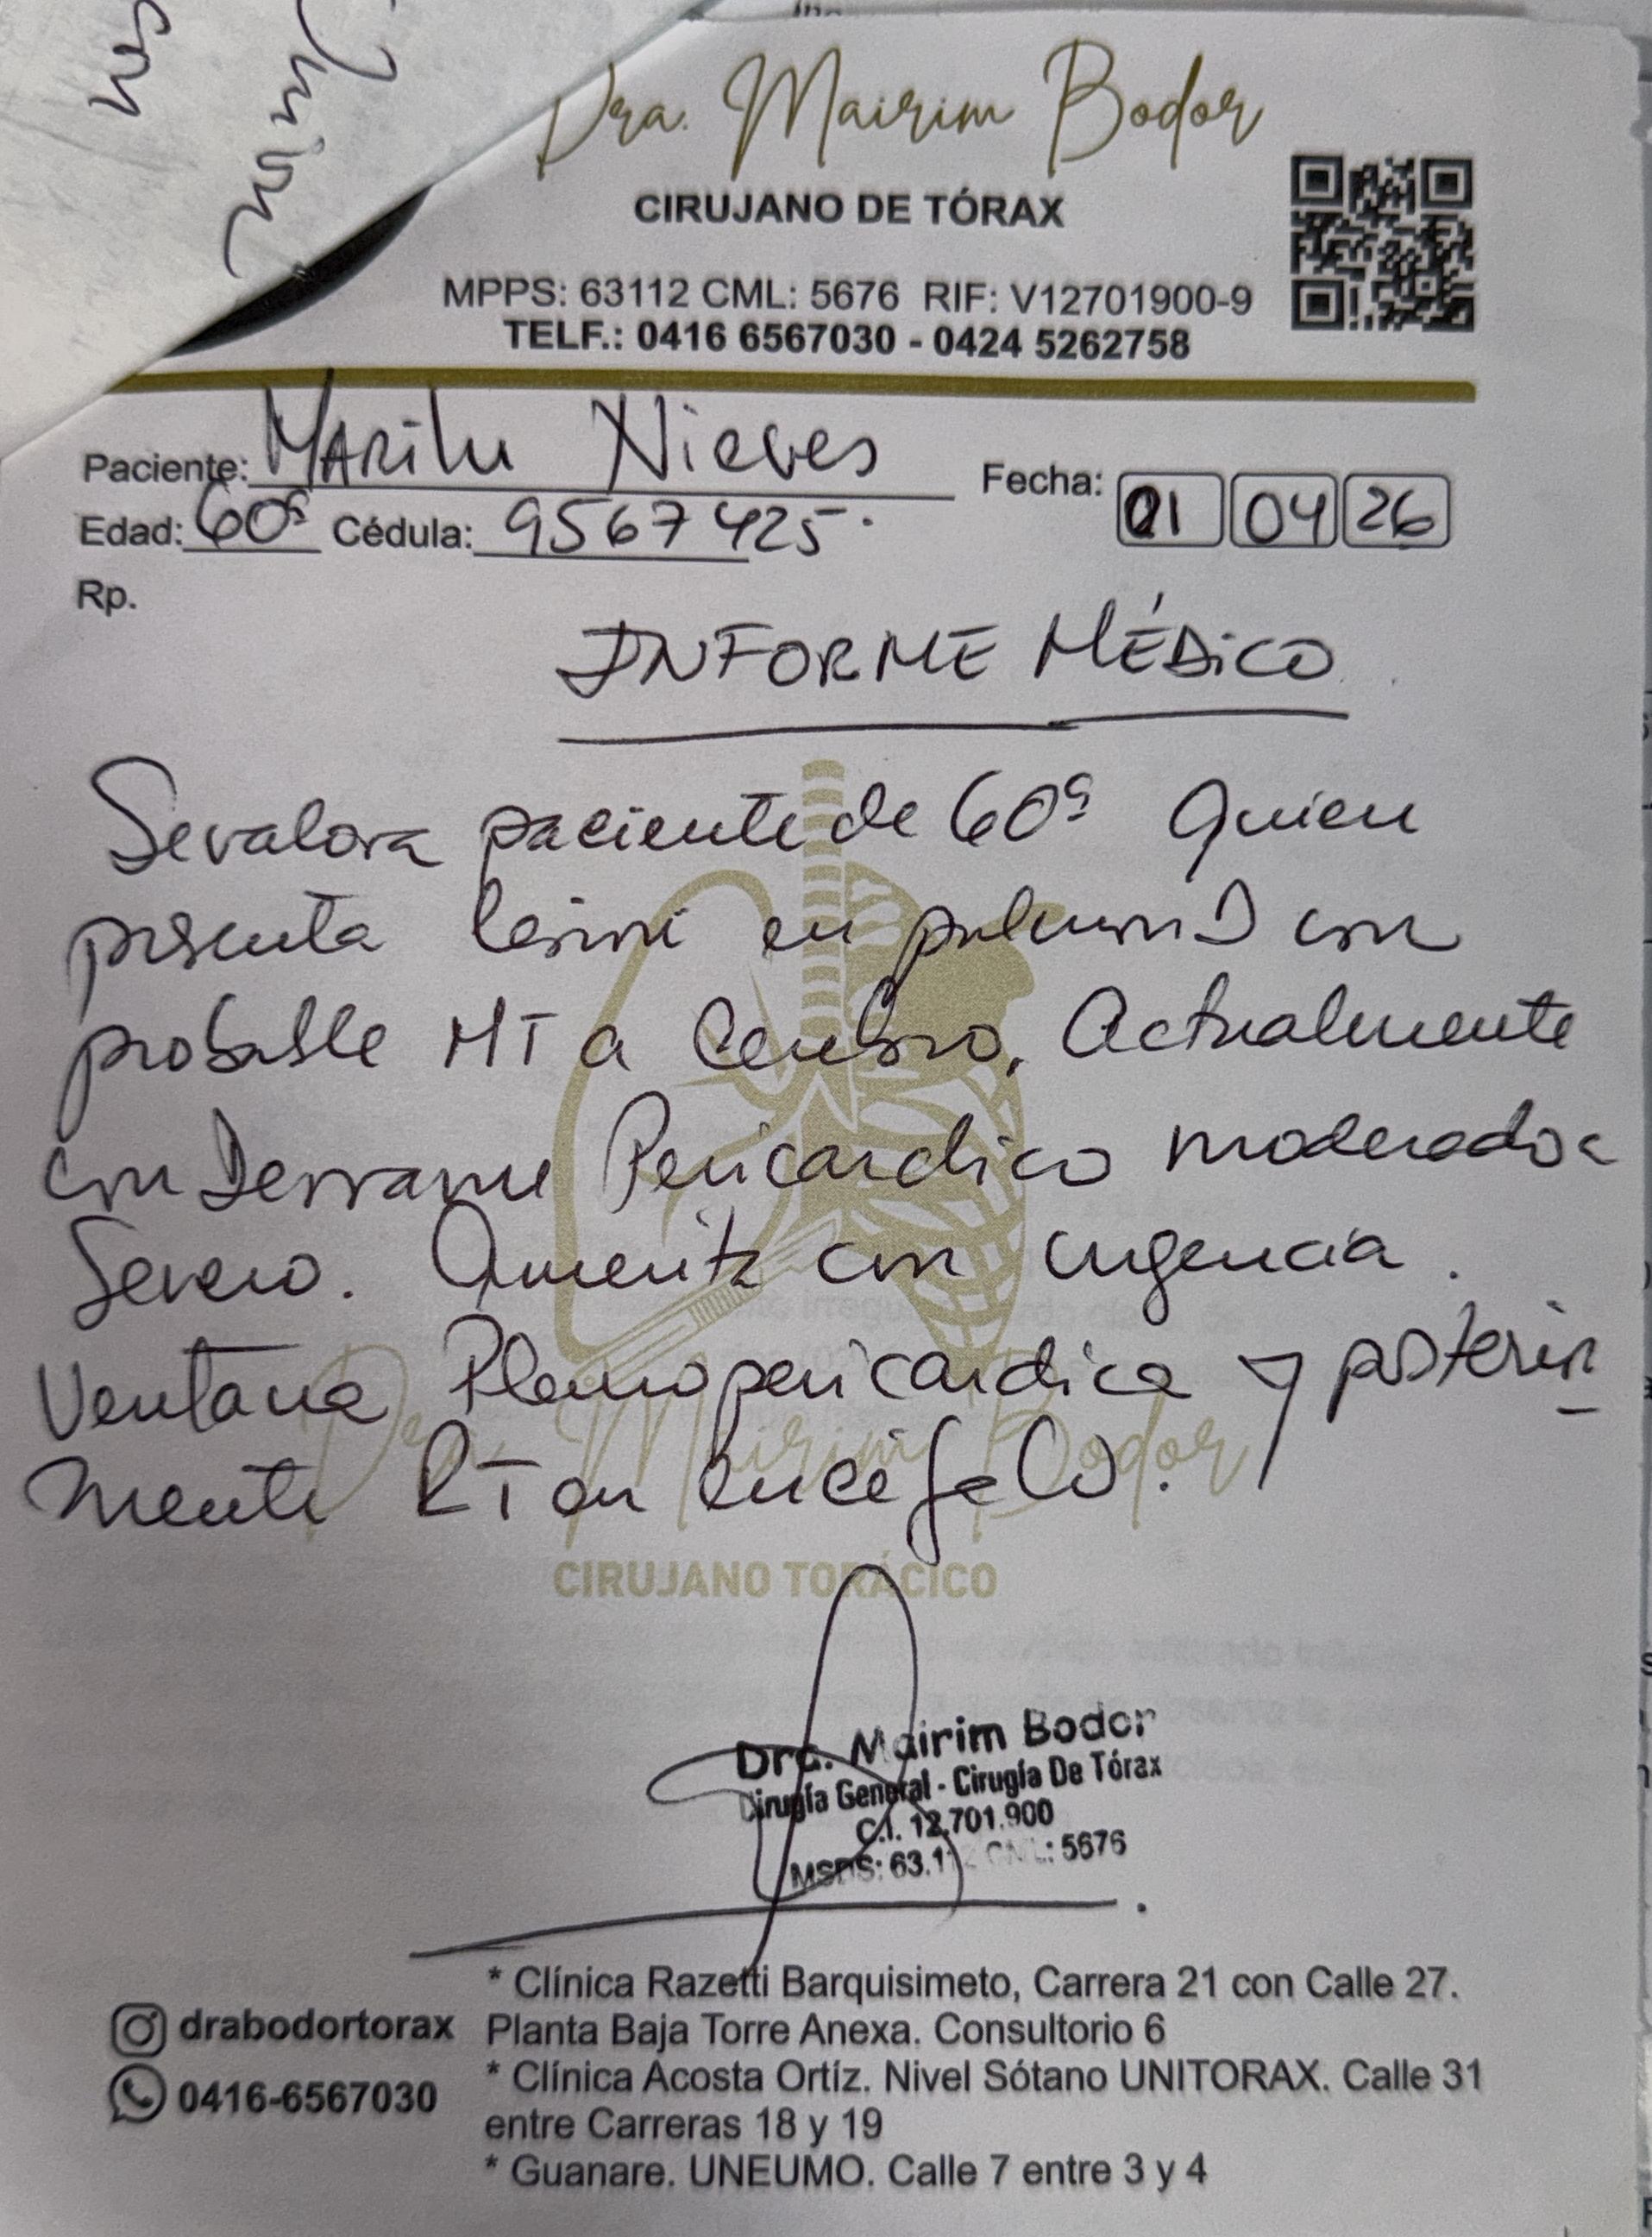 Dra. Mairim Bodor
CIRUJANO DE TÓRAX
MPPS: 63112 CML: 5676 RIF: V12701900-9
TELF.: 0416 6567030 - 0424 5262758
Paciente: MARilu Nieves Fecha: 01 04 26
Edad: 60a Cédula: 9567425.
Rp.
INFORME MÉDiCO
Se valora paciente de 60a Quien
presenta lesion en pulmon D con
probable MT a Cerebro. Actualmente
con Derrame Pericardico moderado a
Severo. Amerita con urgencia.
Ventana Pleuropericardica y posterior
mente RT en encéfalo.
Dra. Mairim Bodor
CIRUJANO TORÁCICO
Dra. Mairim Bodor
Cirugía General - Cirugía De Tórax
C.I. 12.701.900
MSDS: 63.112 CML: 5676
* Clínica Razetti Barquisimeto, Carrera 21 con Calle 27.
drabodortorax Planta Baja Torre Anexa. Consultorio 6
* Clínica Acosta Ortíz. Nivel Sótano UNITORAX. Calle 31
0416-6567030 entre Carreras 18 y 19
* Guanare. UNEUMO. Calle 7 entre 3 y 4